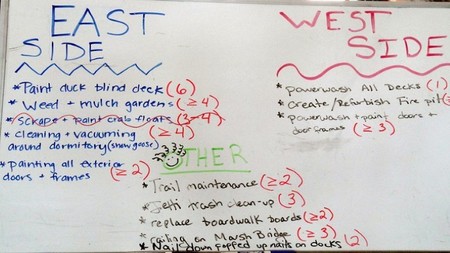 EAST
SIDE
* Paint duck blind deck (6)
* Weed + mulch gardens (≥4)
* Scrape + paint crab floats (3-4)
* Cleaning + vacuuming (≥4)
around dormitory (snow goose)
* Painting all exterior
doors + frames (≥2)
WEST
SIDE
* powerwash All Decks (1)
* create/Refurbish Fire pit
* powerwash + paint doors +
doorframes (≥3)
OTHER
* Trail maintenance (≥2)
* Jetti trash clean-up (3)
* replace boardwalk boards (≥2)
* railing on Marsh Bridge (≥3)
* Nail down popped up nails on docks (2)